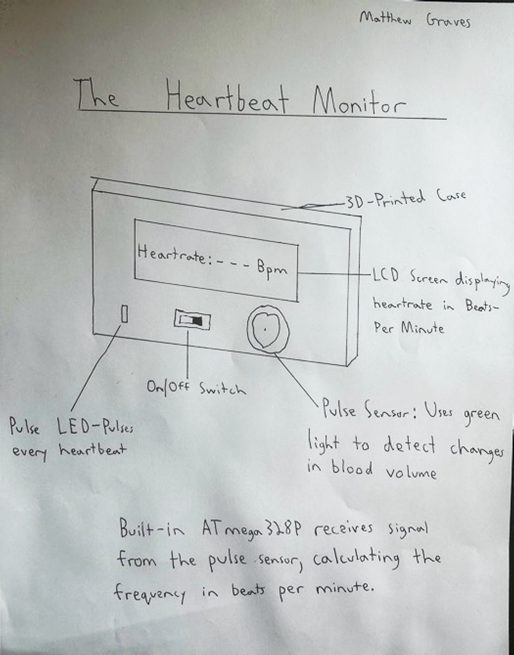 Matthew Graves
The Heartbeat Monitor
3D-Printed Case
Heartrate: - - - Bpm
LCD Screen displaying
heartrate in Beats-
Per Minute
On/Off Switch
Pulse LED-Pulses
every heartbeat
Pulse Sensor: Uses green
light to detect changes
in blood volume
Built-in ATmega328P receives signal
from the pulse sensor, calculating the
frequency in beats per minute.